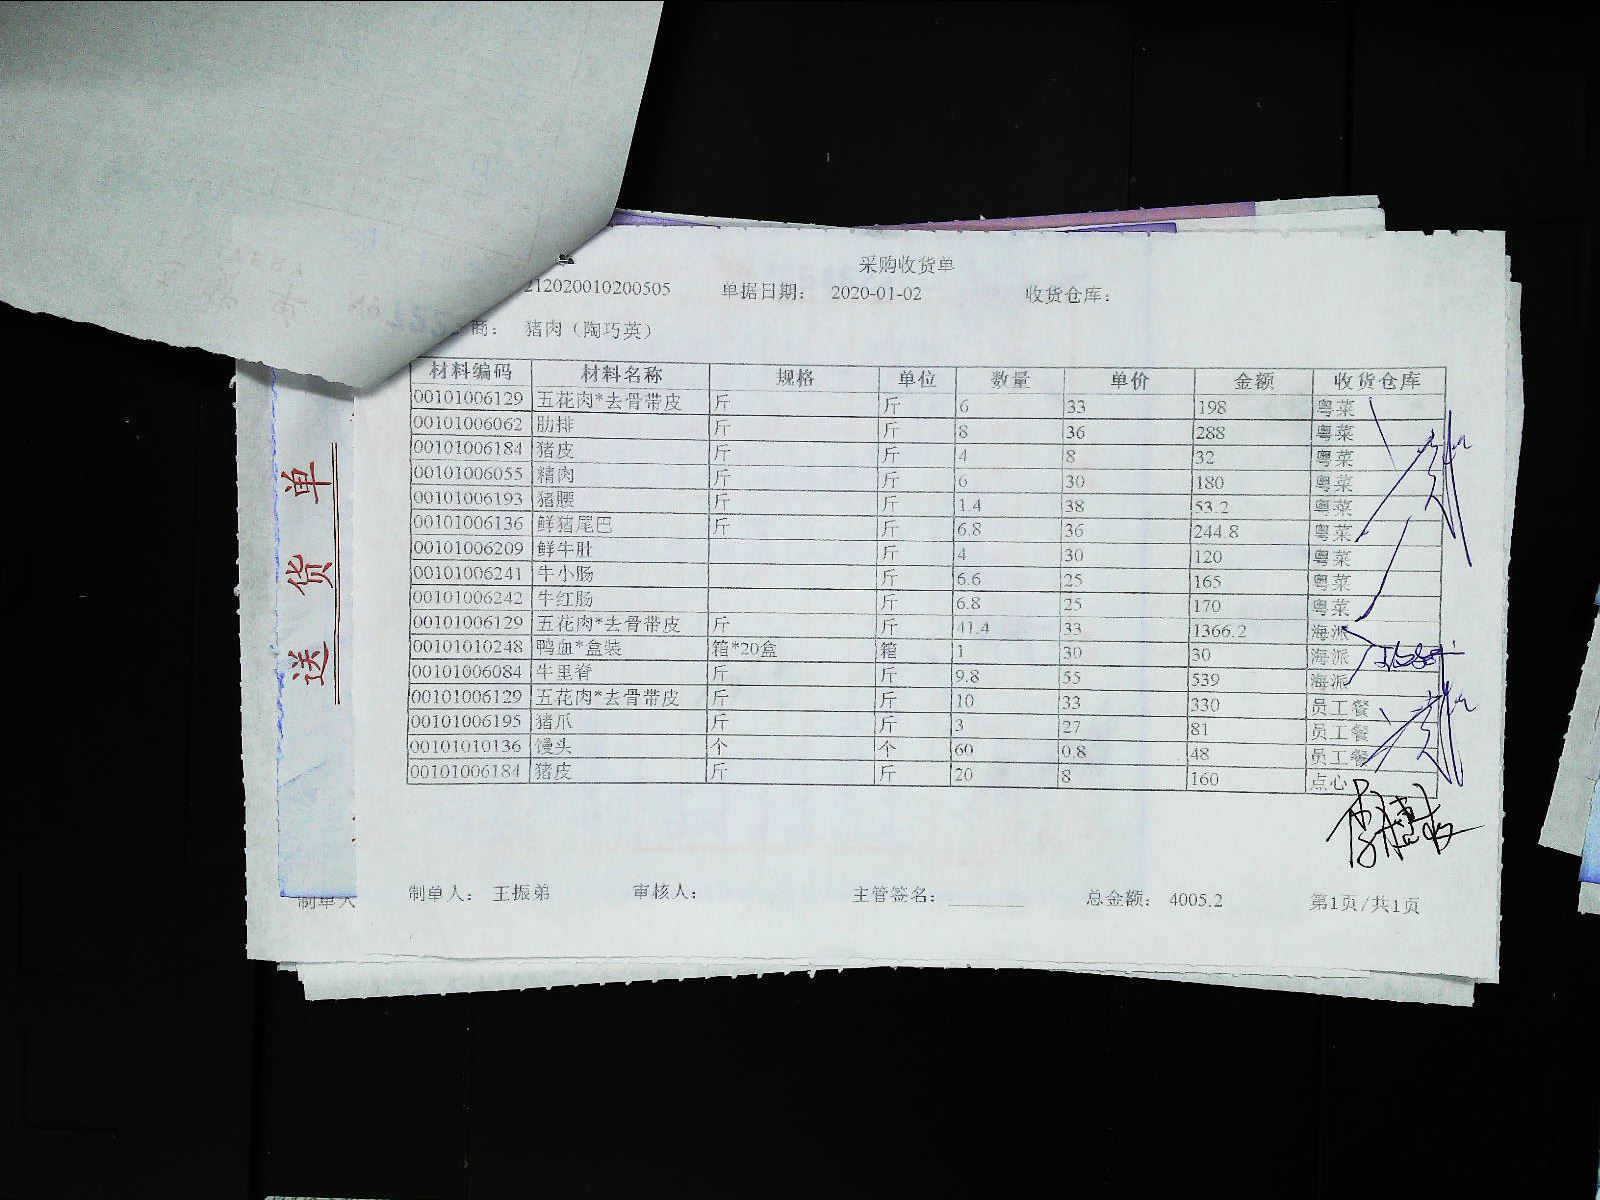 采购收货单
212020010200505 单据日期： 2020-01-02 收货仓库：
商： 猪肉（陶巧英）
材料编码 材料名称 规格 单位 数量 单价 金额 收货仓库
00101006129 五花肉*去骨带皮 斤 斤 6 33 198 粤菜
00101006062 肋排 斤 斤 8 36 288 粤菜
00101006184 猪皮 斤 斤 4 8 32 粤菜
00101006055 精肉 斤 斤 6 30 180 粤菜
00101006193 猪腰 斤 斤 1.4 38 53.2 粤菜
00101006136 鲜猪尾巴 斤 斤 6.8 36 244.8 粤菜
00101006209 鲜牛肚 斤 4 30 120 粤菜
00101006241 牛小肠 斤 6.6 25 165 粤菜
00101006242 牛红肠 斤 6.8 25 170 粤菜
00101006129 五花肉*去骨带皮 斤 斤 41.4 33 1366.2 海派
00101010248 鸭血*盒装 箱*20盒 箱 1 30 30 海派
00101006084 牛里脊 斤 斤 9.8 55 539 海派
00101006129 五花肉*去骨带皮 斤 斤 10 33 330 员工餐
00101006195 猪爪 斤 斤 3 27 81 员工餐
00101010136 馒头 个 个 60 0.8 48 员工餐
00101006184 猪皮 斤 斤 20 8 160 点心
制单人： 王振弟 审核人： 主管签名： 总金额： 4005.2 第1页/共1页
送货单
制单人